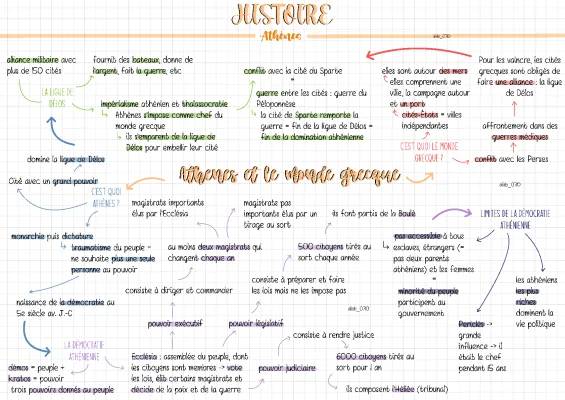 JUSTOIRE
Athènes
alliance militaire avec
plus de 150 cités
fournis des bateaux, donne de
l'argent, fait la guerre, etc
LA LIGUE DE
DÉLOS
impérialisme athénien et thalassocratie
Athènes s'impose comme chef du
monde grecque
ils s'emparent de la ligue de
Délos pour embellir leur cité
conflit avec la cité du Sparte
=
guerre entre les cités : guerre du
Péloponnèse
la cité de Sparte remporte la
guerre = fin de la ligue de Délos =
fin de la domination athénienne
elles sont autour des mers
elles comprennent une
ville, la campagne autour
et un port
cités-États = villes
indépendantes
C'EST QUOI LE MONDE
GRECQUE ?
Pour les vaincre, les cités
grecques sont obligés de
faire une alliance : la ligue
de Délos
affrontement dans des
guerres médiques
conflit avec les Perses
Athènes et le monde grecque
domine la ligue de Délos
Cité avec un grand pouvoir
C'EST QUOI
ATHÈNES ?
monarchie puis dictature
traumatisme du peuple =
ne souhaite plus une seule
personne au pouvoir
naissance de la démocratie au
5e siècle av. J.-C
LA DÉMOCRATIE
ATHÉNIENNE
dêmos = peuple +
kratos = pouvoir
trois pouvoirs donnés au peuple
magistrats importants
élus par l'Ecclésia
magistrats pas
importants élus par un
tirage au sort
au moins deux magistrats qui
changent chaque an
consiste à diriger et commander
pouvoir exécutif
ils font partis de la Boulè
500 citoyens tirés au
sort chaque année
consiste à préparer et faire
les lois mais ne les impose pas
pouvoir législatif
Ecclésia : assemblée du peuple, dont
les citoyens sont membres -> vote
les lois, élit certains magistrats et
décide de la paix et de la guerre
pouvoir judiciaire
consiste à rendre justice
6000 citoyens tirés au
sort pour 1 an
ils composent l'Héliée (tribunal)
LIMITES DE LA DÉMOCRATIE
ATHÉNIENNE
pas accessible à tous
esclaves, étrangers (=
pas deux parents
athéniens) et les femmes
=
minorité du peuple
participent au
gouvernement
Périclès ->
grande
influence -> il
était le chef
pendant 15 ans
les athéniens
les plus
riches
dominent la
vie politique